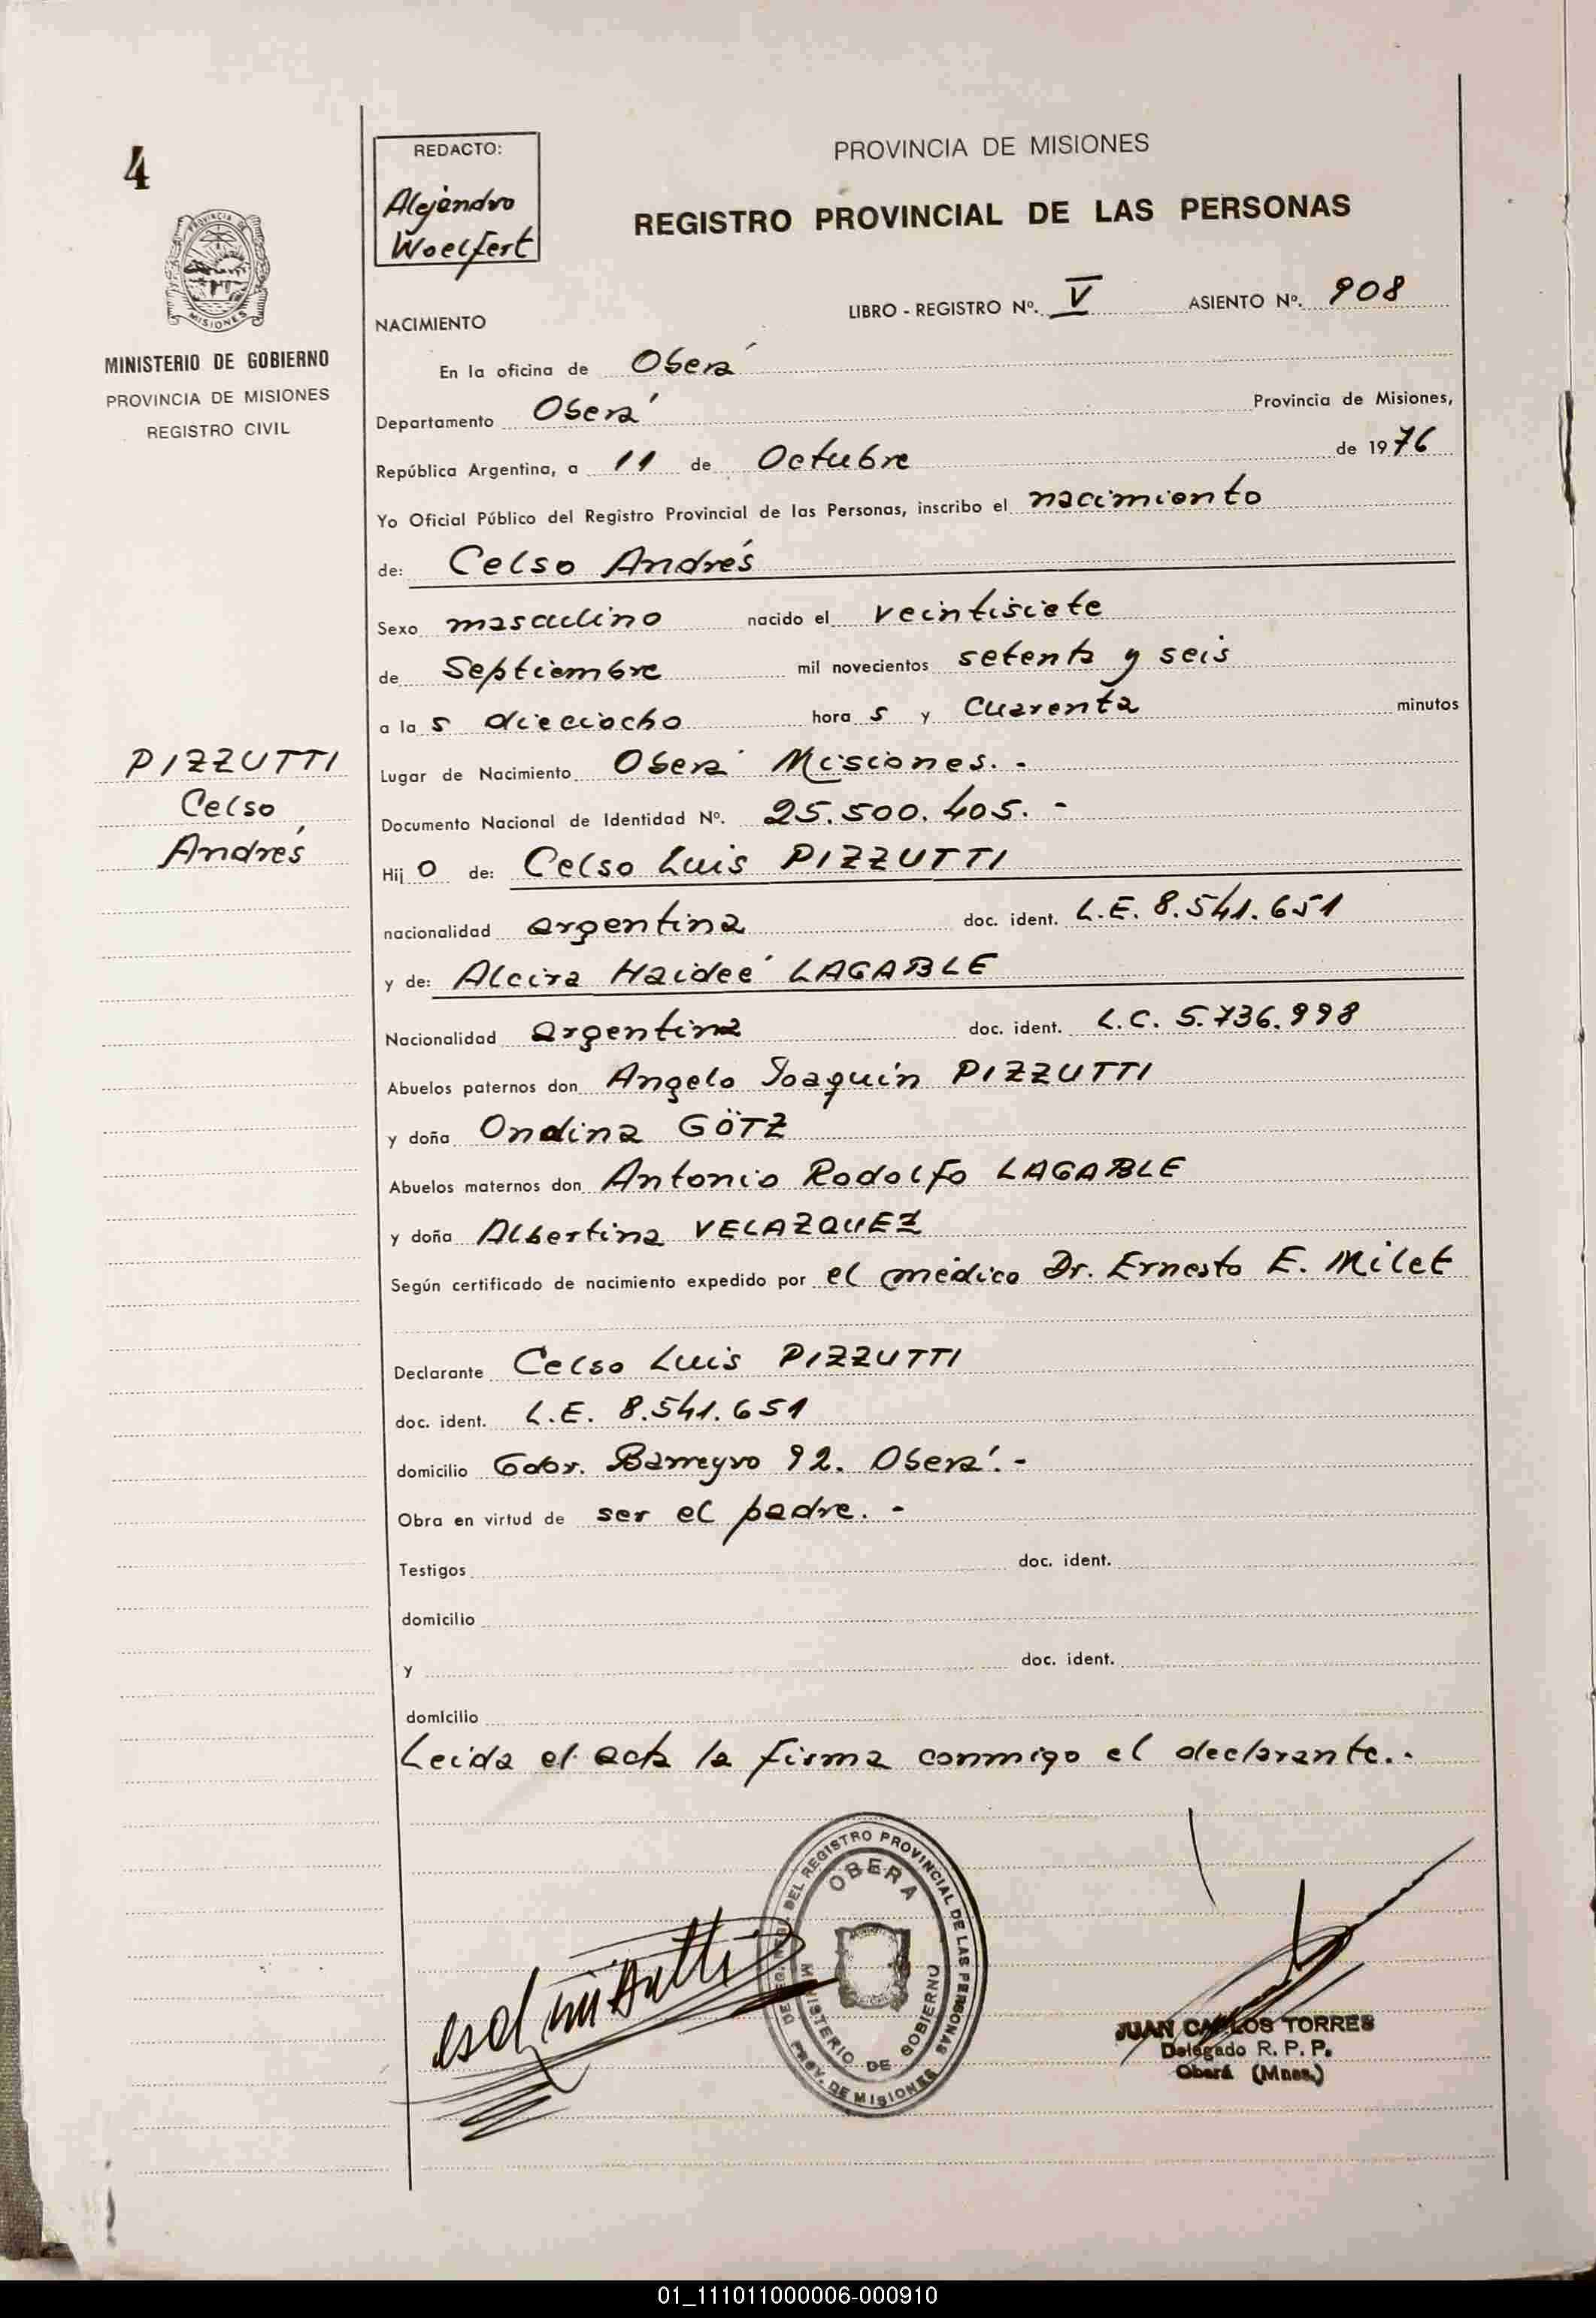 4
PROVINCIA DE
MISIONES
MINISTERIO DE GOBIERNO
PROVINCIA DE MISIONES
REGISTRO CIVIL
REDACTO:
Alejandro
Woelfert
PROVINCIA DE MISIONES
REGISTRO PROVINCIAL DE LAS PERSONAS
LIBRO - REGISTRO Nº. V ASIENTO Nº. 908
NACIMIENTO
En la oficina de Oberá
Departamento Oberá Provincia de Misiones,
República Argentina, a 11 de Octubre de 1976
Yo Oficial Público del Registro Provincial de las Personas, inscribo el nacimiento
de: Celso Andrés
Sexo masculino nacido el veintisiete
de Septiembre mil novecientos setenta y seis
a las dieciocho horas y cuarenta minutos
PIZZUTTI
Celso
Andrés
Lugar de Nacimiento Oberá Misiones. -
Documento Nacional de Identidad Nº. 25.500.405. -
Hijo de: Celso Luis PIZZUTTI
nacionalidad argentina doc. ident. L.E. 8.541.651
y de: Alcira Haideé LAGABLE
Nacionalidad argentina doc. ident. L.C. 5.736.998
Abuelos paternos don Angelo Joaquin PIZZUTTI
y doña Ondina GÖTZ
Abuelos maternos don Antonio Rodolfo LAGABLE
y doña Albertina VELAZQUEZ
Según certificado de nacimiento expedido por el médico Dr. Ernesto E. Milet
Declarante Celso Luis PIZZUTTI
doc. ident. L.E. 8.541.651
domicilio Gobr. Barreyro 92. Oberá. -
Obra en virtud de ser el padre. -
Testigos doc. ident.
domicilio
y doc. ident.
domicilio
Leida el acta la firma conmigo el declarante. -
DEL REGISTRO PROVINCIAL DE LAS PERSONAS
OBERA
MINISTERIO DE GOBIERNO
PROV. DE MISIONES
JUAN CARLOS TORRES
Delegado R. P. P.
Oberá (Mnes.)
01_111011000006-000910